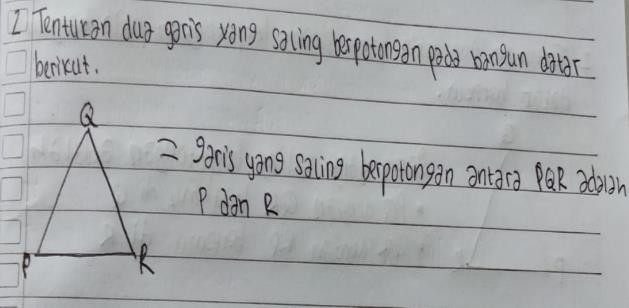 2 Tentukan dua garis yang saling berpotongan pada bangun datar
berikut.
Q
= garis yang saling berpotongan antara PQR adalah
P dan R
P
R